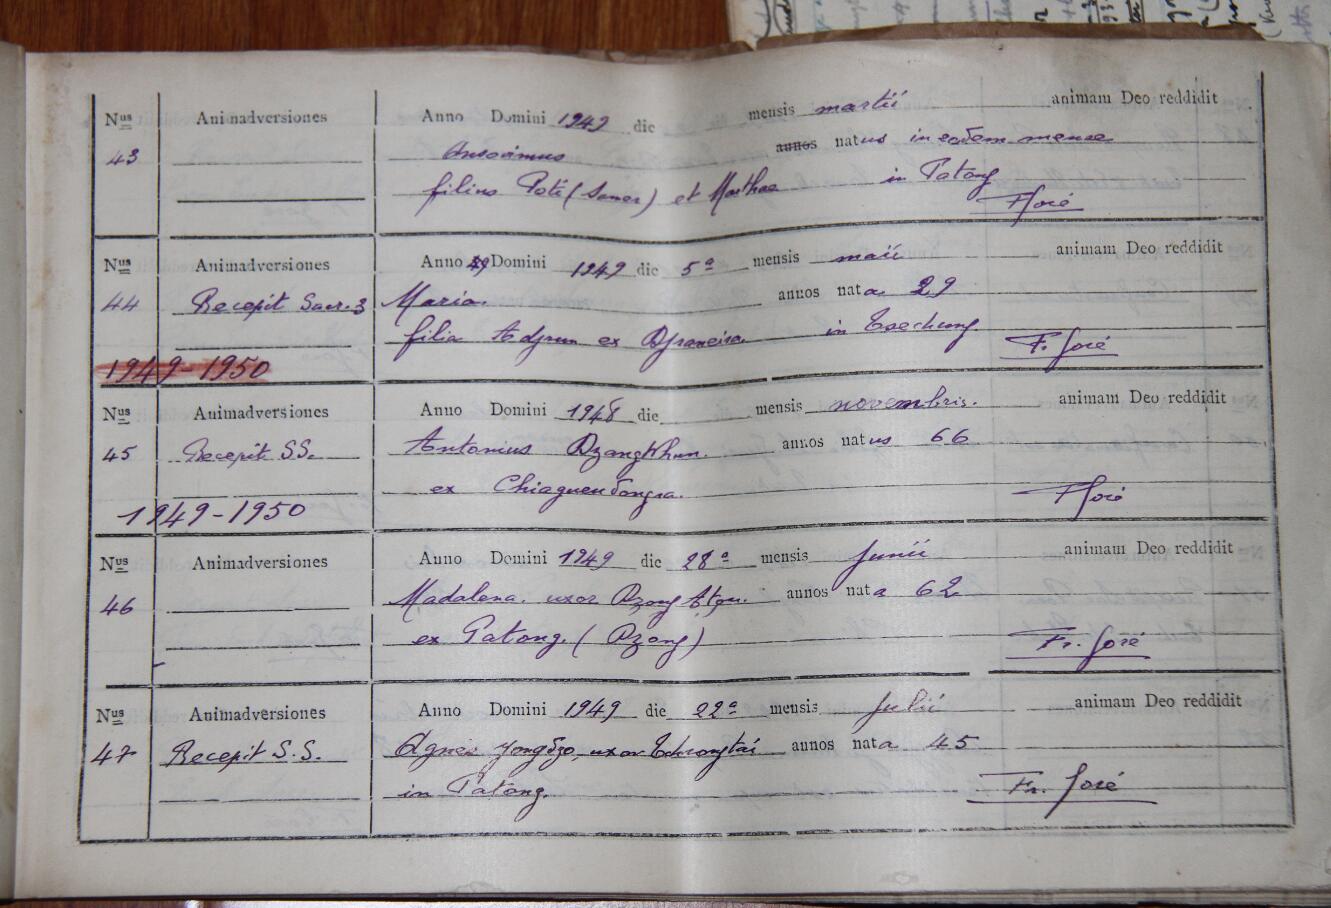 Nus Animadversiones Anno Domini 1949 die mensis martii animam Deo reddidit
43 annos natus in eadem mense
filius Poti (Samer) et Marthae in Patong
F José
Nus Animadversiones Anno Domini 1949 die 5a mensis maii animam Deo reddidit
44 Recepit Sacr. 3 Maria. annos nata 29
filia ex in Tsechung F. José
1949-1950
Nus Animadversiones Anno Domini 1948 die mensis novembris. animam Deo reddidit
45 Recepit SS. Antonius annos natus 66
ex
F José
1949-1950
Nus Animadversiones Anno Domini 1949 die 28a mensis Junii animam Deo reddidit
46 Madalena. uxor Dzong annos nata 62
ex Patong. (Dzong) Fr. José
Nus Animadversiones Anno Domini 1949 die 22a mensis Julii animam Deo reddidit
47 Recepit S.S. Agnes uxor annos nata 45
in Patong. Fr. José